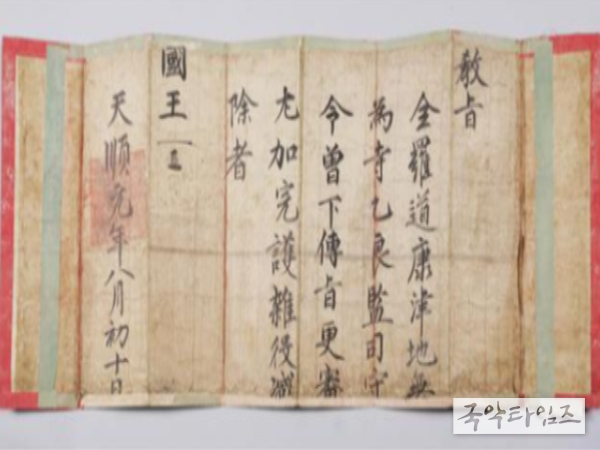 敎旨
全羅道康津地無
為寺乙良監司守
今曾下傳旨更審
尤加完護雜役減
除者
國王
天順元年八月初十日
국악타임즈